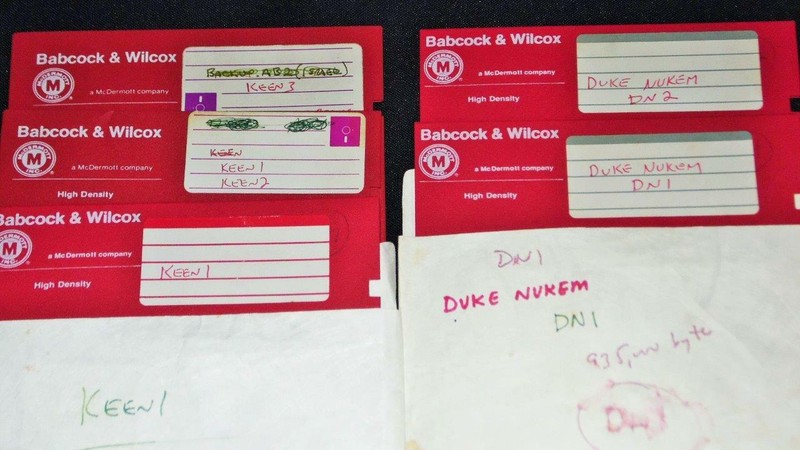 Babcock & Wilcox
McDERMOTT INC.
M
a McDermott company
KEEN 3
Babcock & Wilcox
McDERMOTT INC.
M
a McDermott company
High Density
KEEN
KEEN 1
KEEN 2
Babcock & Wilcox
McDERMOTT INC.
M
a McDermott company
High Density
KEEN 1
KEEN 1
Babcock & Wilcox
McDERMOTT INC.
M
a McDermott company
High Density
DUKE NUKEM
DN2
Babcock & Wilcox
McDERMOTT INC.
M
a McDermott company
High Density
DUKE NUKEM
DN1
DN1
DUKE NUKEM
DN1
byte
DN1